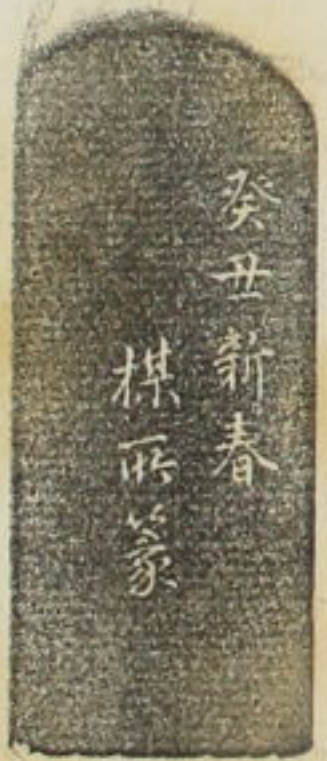 癸丑新春
楳所篆